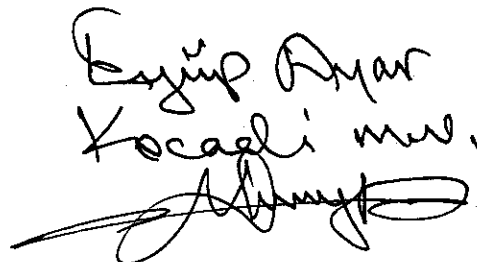 Eyüp Ayar
Kocaeli mv.